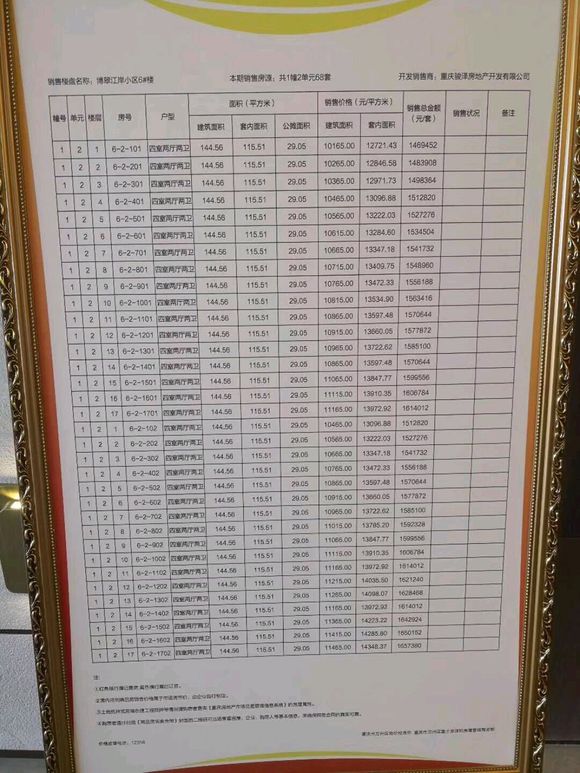 销售楼盘名称：博翠江岸小区6#楼 本期销售房源：共1幢2单元68套 开发销售商：重庆骏泽房地产开发有限公司
幢号 单元 楼层 房号 户型 面积（平方米） 销售价格（元/平方米） 销售总金额（元/套） 销售状况 备注
建筑面积 套内面积 公摊面积 建筑面积 套内面积
1 2 1 6-2-101 四室两厅两卫 144.56 115.51 29.05 10165.00 12721.43 1469452
1 2 2 6-2-201 四室两厅两卫 144.56 115.51 29.05 10265.00 12846.58 1483908
1 2 3 6-2-301 四室两厅两卫 144.56 115.51 29.05 10365.00 12971.73 1498364
1 2 4 6-2-401 四室两厅两卫 144.56 115.51 29.05 10465.00 13096.88 1512820
1 2 5 6-2-501 四室两厅两卫 144.56 115.51 29.05 10565.00 13222.03 1527276
1 2 6 6-2-601 四室两厅两卫 144.56 115.51 29.05 10615.00 13284.60 1534504
1 2 7 6-2-701 四室两厅两卫 144.56 115.51 29.05 10665.00 13347.18 1541732
1 2 8 6-2-801 四室两厅两卫 144.56 115.51 29.05 10715.00 13409.75 1548960
1 2 9 6-2-901 四室两厅两卫 144.56 115.51 29.05 10765.00 13472.33 1556188
1 2 10 6-2-1001 四室两厅两卫 144.56 115.51 29.05 10815.00 13534.90 1563416
1 2 11 6-2-1101 四室两厅两卫 144.56 115.51 29.05 10865.00 13597.48 1570644
1 2 12 6-2-1201 四室两厅两卫 144.56 115.51 29.05 10915.00 13660.05 1577872
1 2 13 6-2-1301 四室两厅两卫 144.56 115.51 29.05 10965.00 13722.62 1585100
1 2 14 6-2-1401 四室两厅两卫 144.56 115.51 29.05 10865.00 13597.48 1570644
1 2 15 6-2-1501 四室两厅两卫 144.56 115.51 29.05 11065.00 13847.77 1599556
1 2 16 6-2-1601 四室两厅两卫 144.56 115.51 29.05 11115.00 13910.35 1606784
1 2 17 6-2-1701 四室两厅两卫 144.56 115.51 29.05 11165.00 13972.92 1614012
1 2 1 6-2-102 四室两厅两卫 144.56 115.51 29.05 10465.00 13096.88 1512820
1 2 2 6-2-202 四室两厅两卫 144.56 115.51 29.05 10565.00 13222.03 1527276
1 2 3 6-2-302 四室两厅两卫 144.56 115.51 29.05 10665.00 13347.18 1541732
1 2 4 6-2-402 四室两厅两卫 144.56 115.51 29.05 10765.00 13472.33 1556188
1 2 5 6-2-502 四室两厅两卫 144.56 115.51 29.05 10865.00 13597.48 1570644
1 2 6 6-2-602 四室两厅两卫 144.56 115.51 29.05 10915.00 13660.05 1577872
1 2 7 6-2-702 四室两厅两卫 144.56 115.51 29.05 10965.00 13722.62 1585100
1 2 8 6-2-802 四室两厅两卫 144.56 115.51 29.05 11015.00 13785.20 1592328
1 2 9 6-2-902 四室两厅两卫 144.56 115.51 29.05 11065.00 13847.77 1599556
1 2 10 6-2-1002 四室两厅两卫 144.56 115.51 29.05 11115.00 13910.35 1606784
1 2 11 6-2-1102 四室两厅两卫 144.56 115.51 29.05 11165.00 13972.92 1614012
1 2 12 6-2-1202 四室两厅两卫 144.56 115.51 29.05 11215.00 14035.50 1621240
1 2 13 6-2-1302 四室两厅两卫 144.56 115.51 29.05 11265.00 14098.07 1628468
1 2 14 6-2-1402 四室两厅两卫 144.56 115.51 29.05 11165.00 13972.92 1614012
1 2 15 6-2-1502 四室两厅两卫 144.56 115.51 29.05 11365.00 14223.22 1642924
1 2 16 6-2-1602 四室两厅两卫 144.56 115.51 29.05 11415.00 14285.60 1650152
1 2 17 6-2-1702 四室两厅两卫 144.56 115.51 29.05 11465.00 14348.37 1657380
注:
价格监督电话：12358